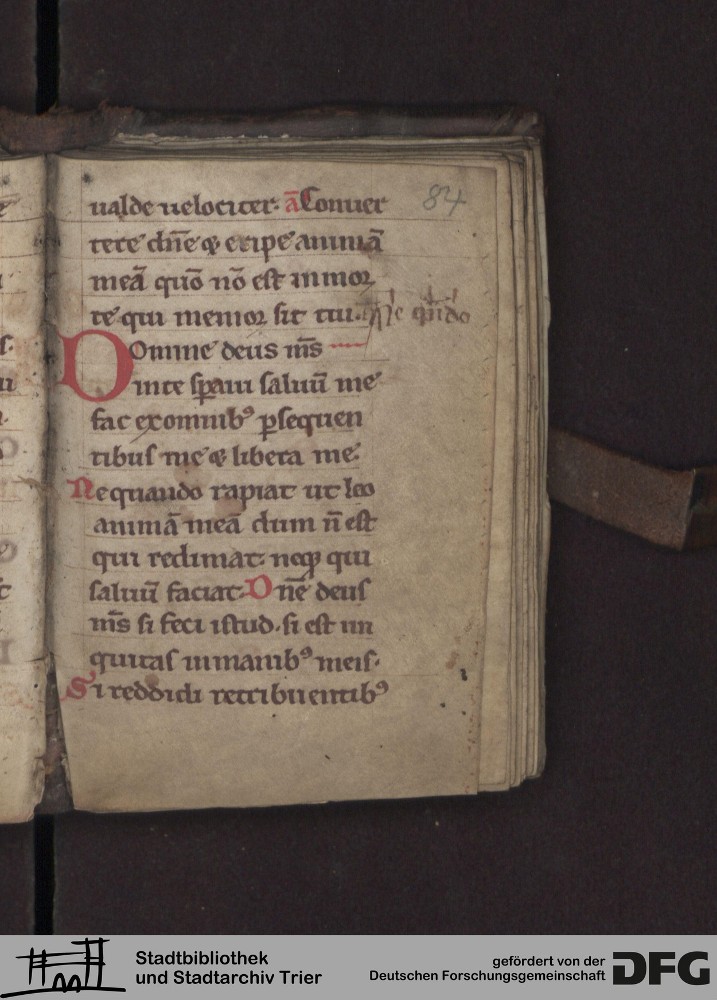 ualde uelociter. a͞ Conuer
84
tere dn̅e ⁊ eripe animā
meā quō nō est in mor
te qui memor sit tui.
Domine deus m̅s
in te speraui saluū me
fac ex omnibꝰ ꝑsequen
tibus me ⁊ libera me.
Ne quando rapiat ut leo
animā meā dum n̄ est
qui redimat. neqꝫ qui
saluū faciat. Dn̅e deus
m̅s si feci istud. si est ini
quitas in manibꝰ meis.
Si reddidi retribuentibꝰ
Stadtbibliothek
und Stadtarchiv Trier
gefördert von der
Deutschen Forschungsgemeinschaft
DFG